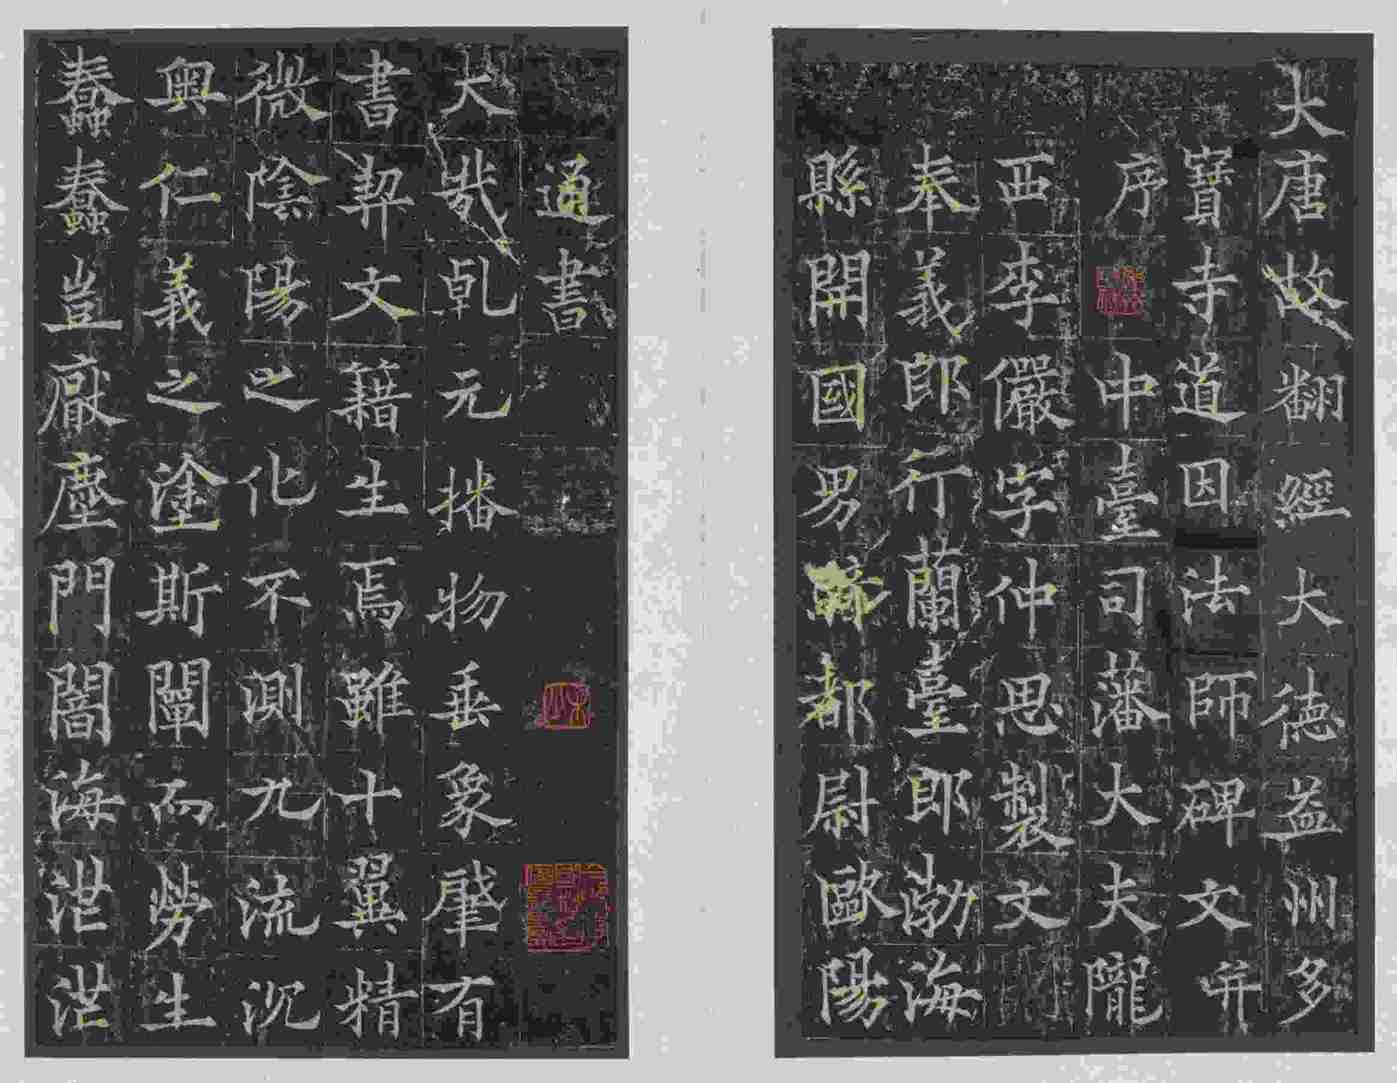 大唐故翻經大德益州多
寶寺道因法師碑文并
序 中臺司藩大夫隴
西李儼字仲思製文
奉義郎行蘭臺郎渤海
縣開國男都尉歐陽
通書
大哉乹元播物垂象肇有
書契文籍生焉雖十翼精
微陰陽之化不測九流沉
奧仁義之塗斯闡而勞生
蠢蠢豈厭塵門闇海茫茫